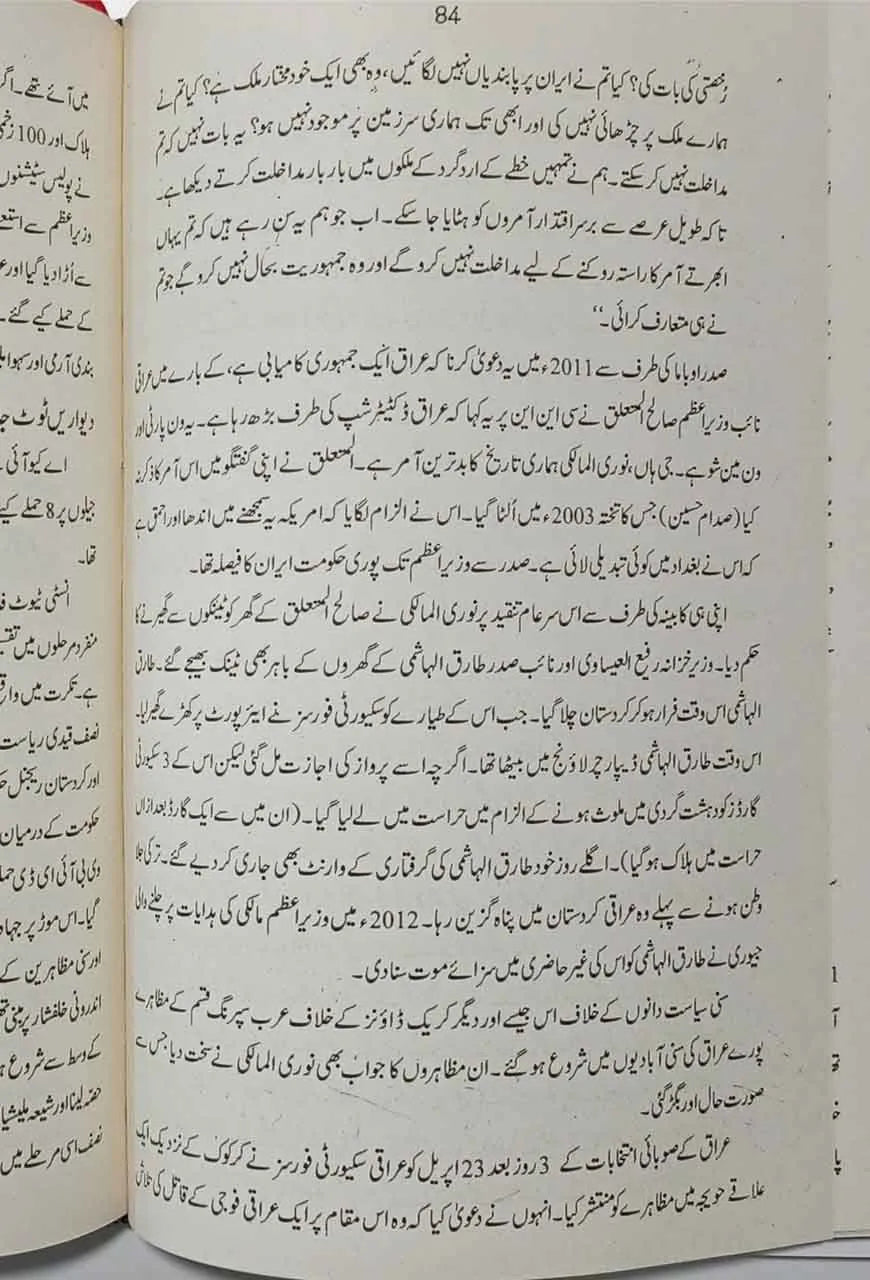 84
رُخصتی کی بات کی؟ کیا تم نے ایران پر پابندیاں نہیں لگائیں، وہ بھی ایک خود مختار ملک ہے؟ کیا تم نے
ہمارے ملک پر چڑھائی نہیں کی اور ابھی تک ہماری سرزمین پر موجود نہیں ہو؟ یہ بات نہیں کہ تم
مداخلت نہیں کر سکتے۔ ہم نے تمہیں خطے کے اردگرد کے ملکوں میں بار بار مداخلت کرتے دیکھا ہے۔
تا کہ طویل عرصے سے برسراقتدار آمروں کو ہٹایا جا سکے۔ اب جو ہم یہ سن رہے ہیں کہ تم یہاں
ابھرتے آمر کا راستہ روکنے کے لیے مداخلت نہیں کرو گے اور وہ جمہوریت بحال نہیں کرو گے جو تم
نے ہی متعارف کرائی۔‘‘
صدر اوباما کی طرف سے 2011ء میں یہ دعویٰ کرنا کہ عراق ایک جمہوری کامیابی ہے، کے بارے میں عراقی
نائب وزیراعظم صالح المتعلق نے سی این این پر یہ کہا کہ عراق ڈکٹیٹر شپ کی طرف بڑھ رہا ہے۔ یہ ون پارٹی اور
ون مین شو ہے۔ جی ہاں، نوری المالکی ہماری تاریخ کا بدترین آمر ہے۔ المتعلق نے اپنی گفتگو میں اس آمر کا ذکر نہ
کیا (صدام حسین) جس کا تختہ 2003ء میں اُلٹا گیا۔ اس نے الزام لگایا کہ امریکہ یہ سمجھنے میں اندھا اور احمق ہے
کہ اس نے بغداد میں کوئی تبدیلی لائی ہے۔ صدر سے وزیراعظم تک پوری حکومت ایران کا فیصلہ تھا۔
اپنی ہی کابینہ کی طرف سے اس سرعام تنقید پر نوری المالکی نے صالح المتعلق کے گھر کو ٹینکوں سے گھیرنے کا
حکم دیا۔ وزیر خزانہ رفیع العیساوی اور نائب صدر طارق الہاشمی کے گھروں کے باہر بھی ٹینک بھیجے گئے۔ طارق
الہاشمی اس وقت فرار ہو کر کردستان چلا گیا۔ جب اس کے طیارے کو سکیورٹی فورسز نے ایئر پورٹ پر کھڑے گھیر لیا۔
اس وقت طارق الہاشمی ڈیپارچر لاؤنج میں بیٹھا تھا۔ اگرچہ اسے پرواز کی اجازت مل گئی لیکن اس کے 3 سکیورٹی
گارڈز کو دہشت گردی میں ملوث ہونے کے الزام میں حراست میں لے لیا گیا۔ (ان میں سے ایک گارڈ بعد ازاں
حراست میں ہلاک ہو گیا)۔ اگلے روز خود طارق الہاشمی کی گرفتاری کے وارنٹ بھی جاری کر دیے گئے۔ ترکی جلا
وطن ہونے سے پہلے وہ عراقی کردستان میں پناہ گزین رہا۔ 2012ء میں وزیراعظم مالکی کی ہدایات پر چلنے والی
جیوری نے طارق الہاشمی کو اس کی غیر حاضری میں سزائے موت سنا دی۔
سنی سیاست دانوں کے خلاف اس جیسے اور دیگر کریک ڈاؤنز کے خلاف عرب سپرنگ قسم کے مظاہرے
پورے عراق کی سنی آبادیوں میں شروع ہو گئے۔ ان مظاہروں کا جواب بھی نوری المالکی نے سخت دیا جس سے
صورت حال اور بگڑ گئی۔
عراق کے صوبائی انتخابات کے 3 روز بعد 23 اپریل کو عراقی سکیورٹی فورسز نے کرکوک کے نزدیک ایک
علاقے حویجہ میں مظاہرے کو منتشر کیا۔ انہوں نے دعویٰ کیا کہ وہ اس مقام پر ایک عراقی فوجی کے قاتل کی تلاش
میں آئے تھے۔ اگر
ہلاک اور 100 زخمی
نے پولیس سٹیشنوں
وزیراعظم سے استع
سے اُڑا دیا گیا اور
کے حملے کیے گئے۔
بندی آرمی اور سہوا
دیواریں ٹوٹ
اے کیو آئی
جیلوں پر 8 حملے کیے
تھا۔
انسٹی ٹیوٹ
منفرد مرحلوں میں
ہے۔ تکرت میں
نصف قیدی ریاست
اور کردستان ریجنل
حکومت کے درمیان
وی بی آئی ای ڈی
گیا۔ اس موڑ پر
اور سنی مظاہرین کے
اندرونی خلفشار پر مبنی
کے وسط سے شروع
حصہ لینا اور شیعہ ملیشیا
نصف اسی مرحلے میں